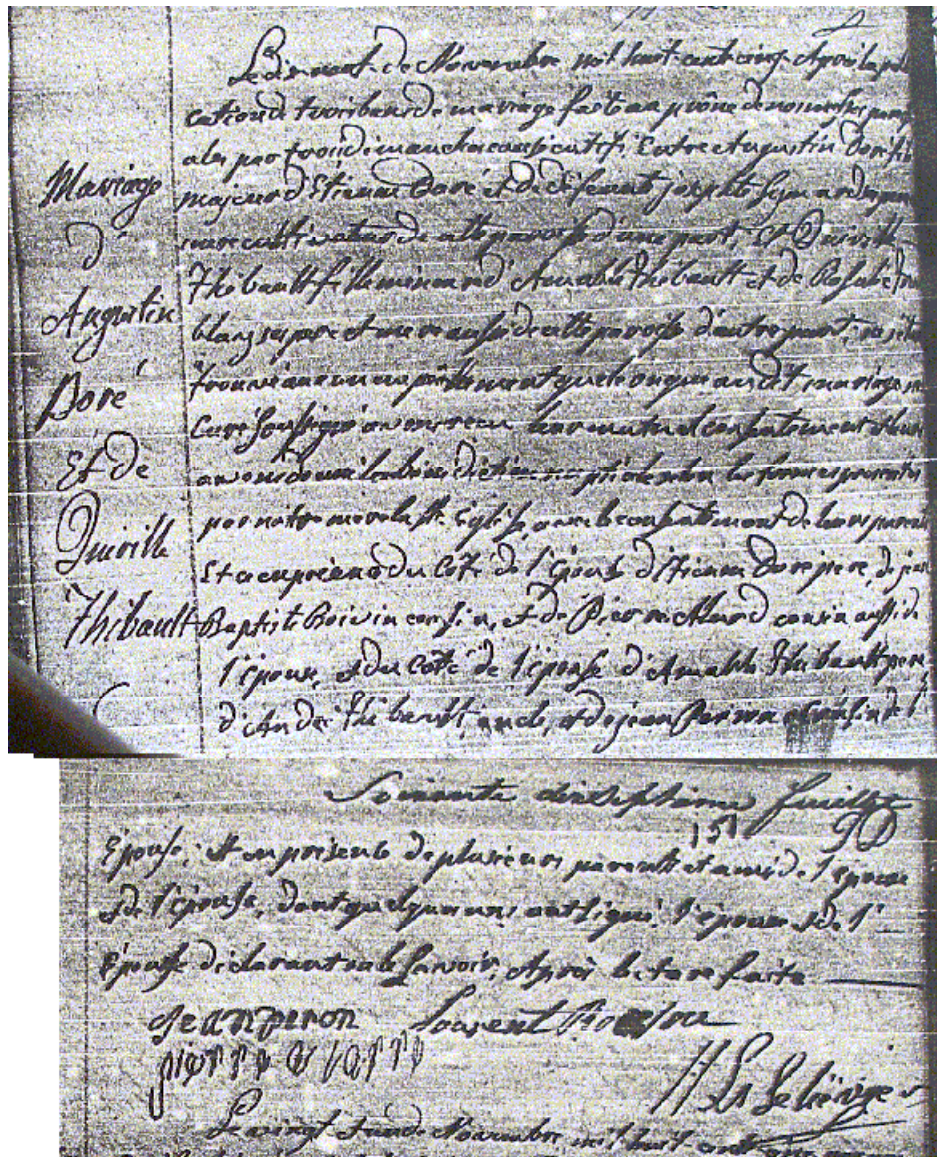 Mariage
D'
Augustin
Doré
Et de
Quiville
Thibault
Le dix neuf de Novembre mil huit cent onze Après la publi
cation de trois bans de mariage fait au prône de nos messes paroi
ales par trois dimanches consécutifs Entre Augustin Doré fils
majeur d'Etienne Doré et de défunte josephte ses père
mère cultivateur de cette paroisse d'une part, Et Quiville
Thibault fille mineure d'Amable Thibault et de Rosalie
blang ses père et mère aussi de cette paroisse d'autre part, ne s'étant
trouvé aucun empêchement quelconque au dit mariage, nous
Curé soussigné avons reçu leur mutuel consentement et leur
avons donné la bénédiction nuptiale selon la forme prescrite
par notre mère la Ste Eglise, avec le consentement de leurs parents
Et ce en présence du Côté de l'Epoux d'Etienne Doré père, de jean
Baptiste Boivin cousin, et de Pierre cousin aussi de
l'époux, et du Côté de l'épouse d'Amable Thibault père
d'André Thibault, oncle, et de jean Perron cousin de l'
Soixante dix septième feuillet
151 90
Epouse; Et en présence de plusieurs parents et amis de l'époux
et de l'épouse, dont quelques uns ont signé, l'époux et de l'
Epouse déclarant ne le savoir, Après lecture faite
Jean peron Laurent
pierre
Le vingt de Novembre mil huit cent onze